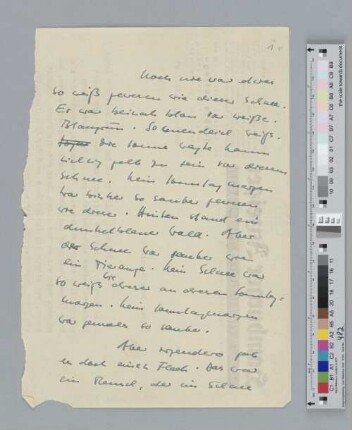 Noch nie war etwas
so weiß gewesen wie dieser Schnee.
Er war beinah blau vor weiße.
Blaugrün. So weiß.
Die Sonne wagte kaum
gelb zu sein vor diesem
Schnee. Kein Sonntagmorgen
war bisher so sauber gewesen
wie dieser. Hinten stand ein
dunkelblauer Wald. Aber
der Schnee war sauber wie
ein Tierauge. Kein Schnee war
so weiß wie dieser an diesem Sonntag-
morgen. Kein Sonntagmorgen
war jemals so sauber.
Aber irgendwo gab
es doch einen Fleck. Das war
ein Mensch, der im Schnee